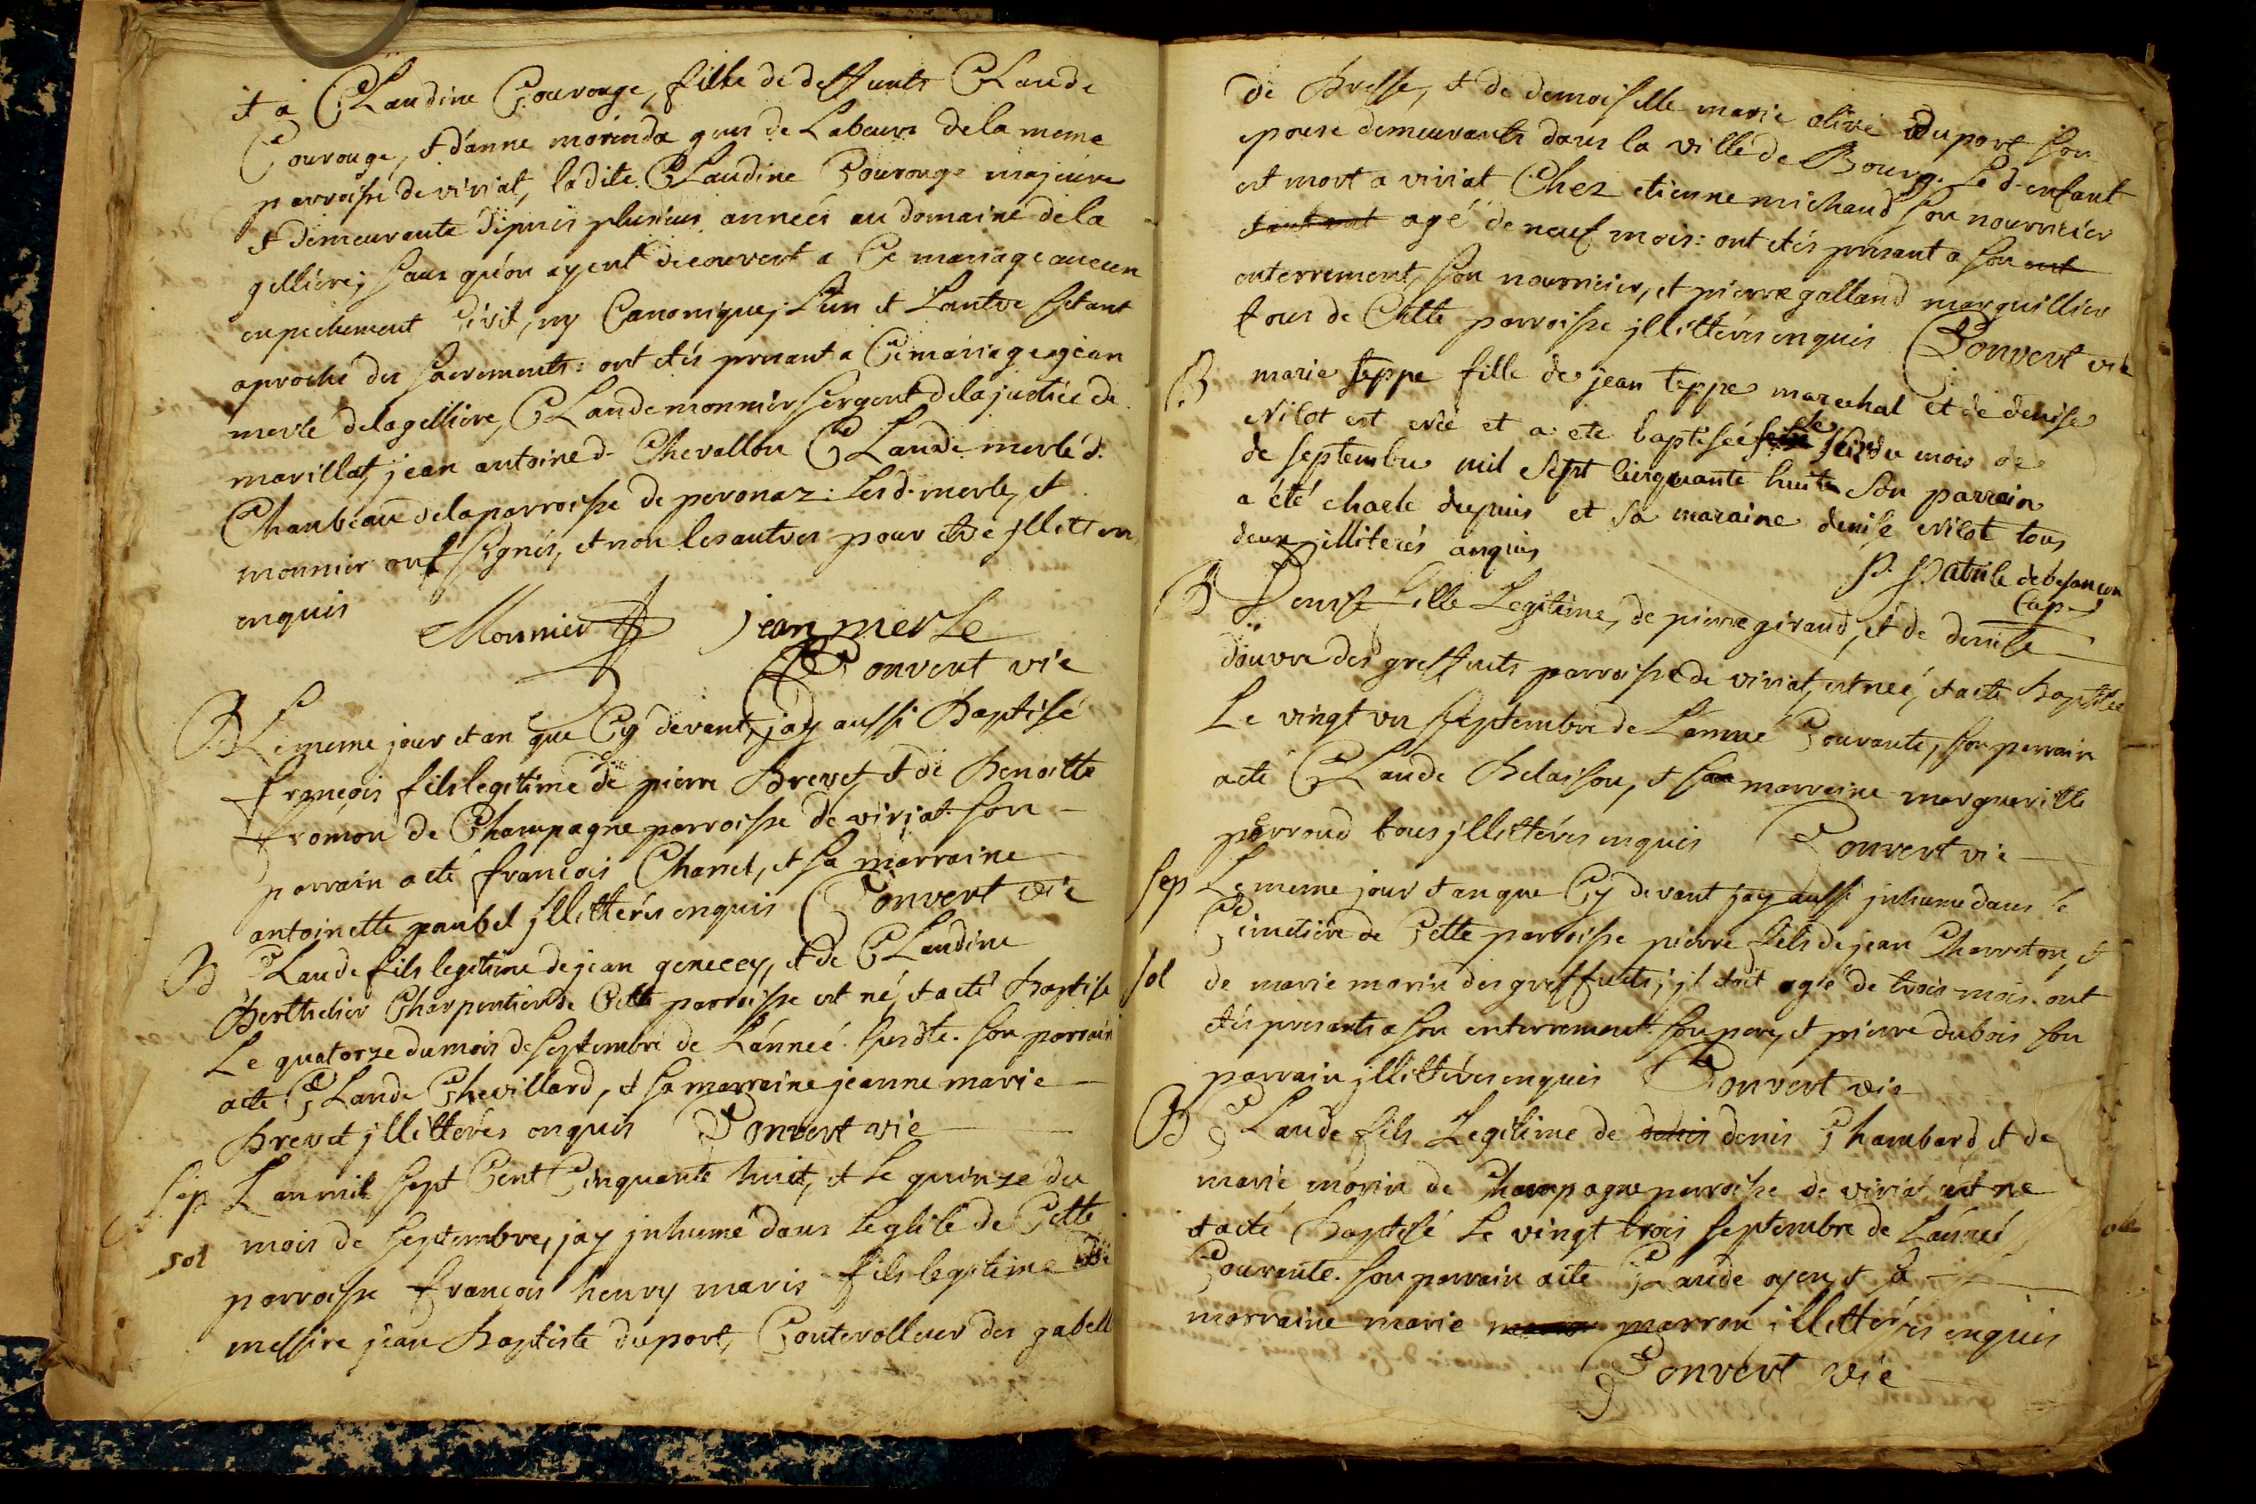 et a Claudine Courouge, fille de deffunts Claude
Courouge, et d'anne morinda gens de Labeurs de la meme
parroisse de viriat, ladite Claudine Courouge majeure
et demeurante depuis plusieurs années au domaine de la
gelliere; sans qu'on ayent decouvert a Ce mariage aucun
enpechement Civil, ny Canonique, L'un et L'autre s'etant
aproché des sacrements: ont etés present a Ce mariage jean
merle delagelliere, Claude monnier sergent dela justice de
marillat, jean antoine d. Chevallon Claude merle d.
Chambeau de la parroisse de peronaz: Lesd. merle, et
monnier ont signés, et non les autres pour etre jlletteres
enquis
Monnier jean merle
Convert vic
B Le meme jour et an que Cy devant, jay aussi Baptisé
françois fils legitime de pierre Brevet, et de Benoitte
fromon de Champagne parroisse de viriat. son
parrain a eté françois Charnel, et sa marraine
antoinette paubel jllittérés enquis Convert vic
B Claude fils legitime de jean genecey, et de Claudine
Berthelier Charpentier de Cette parroisse est né, et a eté Baptise
Le quatorze du mois de septembre de L'année. susdte. son parrain
a eté Claude Chevillard, et sa marraine jeanne marie
Brevet jllittérés enquis Convert vic
sep L'an mil sept Cent Cinquante huit, et Le quinze du
mois de septembre, jay jnhumé dans L'eglise de Cette
sol
parroisse françois henry maris fils legitime de
messire jean Baptiste duport, Conterolleur des gabell
de Bresse, et de demoiselle marie olive duport son
epouse demeurants dans la ville de Bourg. Le d. enfant
est mort a viriat Chez etienne michaud son nourricier
agé de neuf mois: ont etés présent a son
enterrement, son nourricier, et pierre galland marguillier
tous de Cette parroisse jllittérés enquis Convert vic
B marie teppe fille de jean teppe marechal et de denise
Nilot est née et a ete baptisée le seize du mois de
de septembre mil sept cinquante huit son parrain
a été charle dupuis et sa maraine denise Nilot tous
deux illiterés anquis
P. Patrile de besancon
Cap.
B Denise fille Legitime, de pierre giraud, et de denise
douvre des greffiets parroisse de viriat, est neé, et a eté Baptisée
Le vingt un septembre de L'année Courante, son parrain
a eté Claude Belaisson, et sa marraine margueritte
perroud tous jllittérés enquis Convert vic
sep Le meme jour et an que Cy devant jay aussi jnhumé dans le
Cimetiere de Cette parroisse pierre fils de jean Charreton, et
sol de marie morin des greffiets; jl etoit agé de trois mois. ont
etés presents a son enterrement son pere, et pierre dubois son
parrain jllittérés enquis Convert vic
B Claude fils Legitime de denis Chambard et de
marie morin de Champagne parroisse de viriat est né
et a eté Baptisé Le vingt trois septembre de L'année
Courante. son parrain a eté Claude et sa
marraine marie marron illittérés enquis
Convert vic